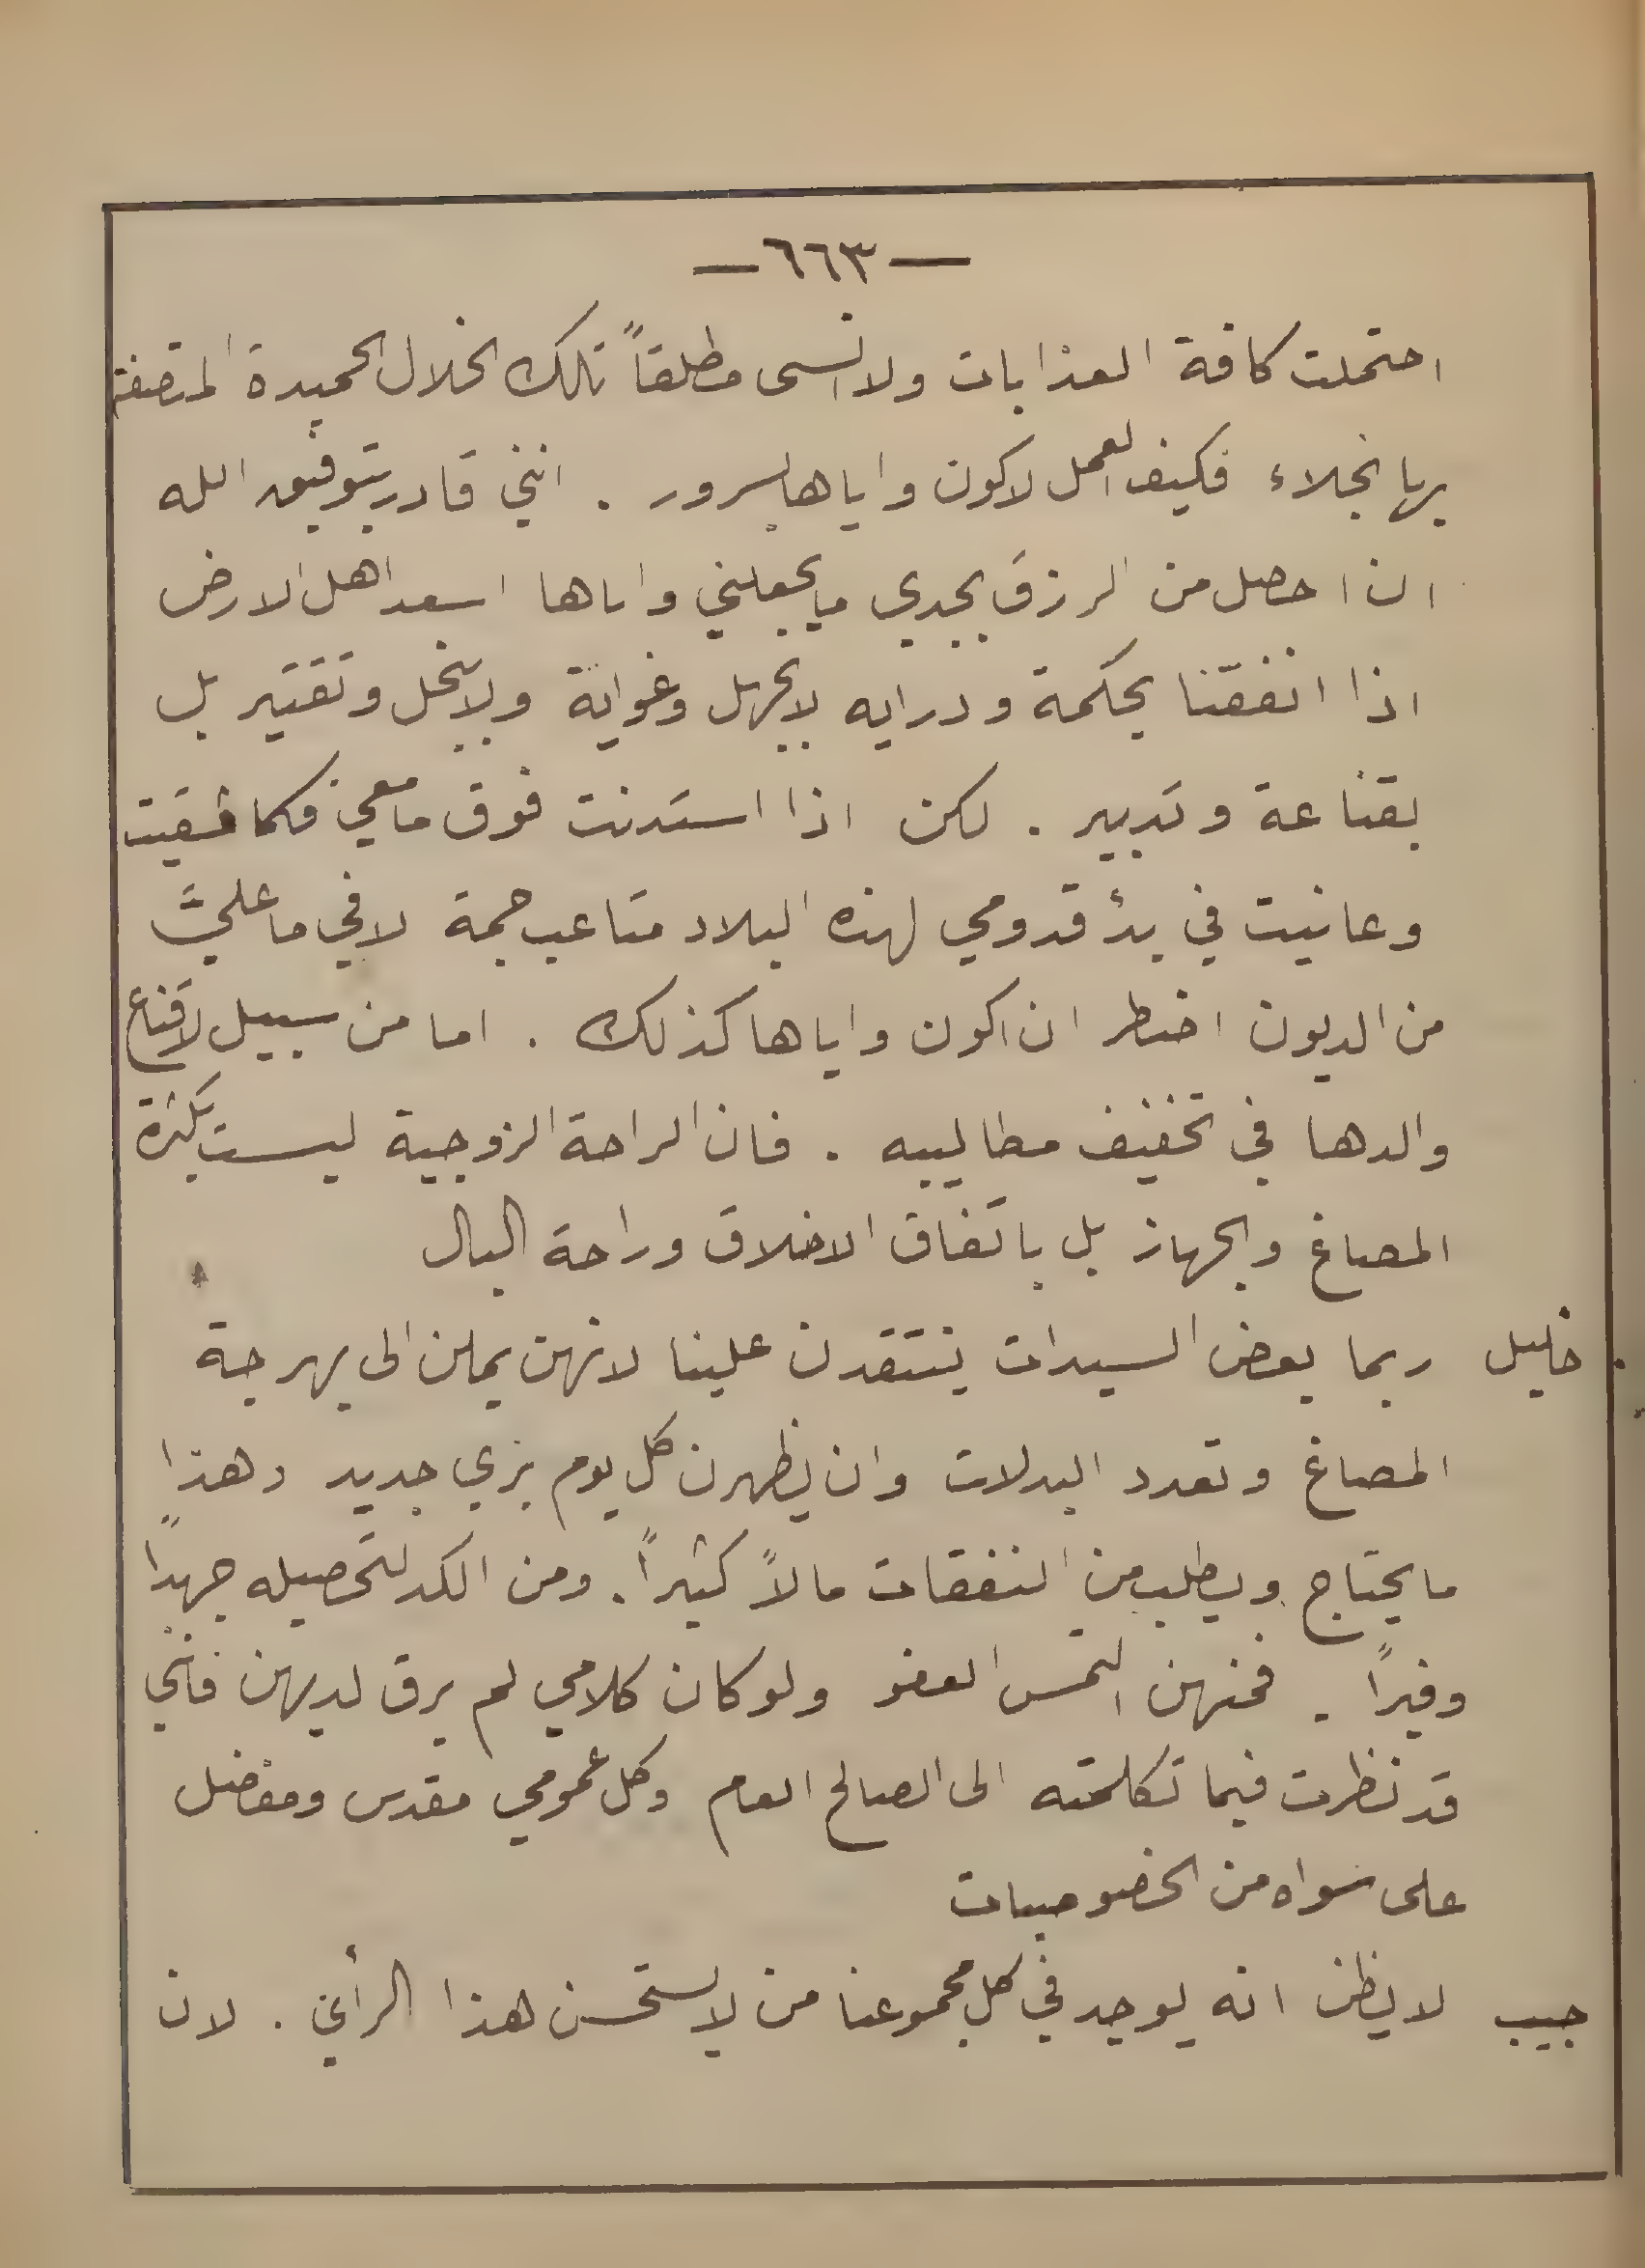 — ٦٦٣ —
احتملت كافة العذابات ولا انسى مطلقاً تلك الخلال الحميدة المتصفة
بها نجلاء فكيف العمل لاكون واياها بسرور . انني قادر بتوفيق الله
ان احصل من الرزق بجدي ما يجعلني واياها اسعد اهل الارض
اذا انفقنا بحكمة ودرايه لا بجهل وغواية ولا ببخل وتقتير بل
بقناعة وتدبير . لكن اذا استدنت فوق ما معي فكما شقيت
وعانيت في بدء قدومي لهذه البلاد متاعب جمة لافي ما عليَّ
من الديون اضطر ان اكون واياها كذلك . اما من سبيل لاقناع
والدها في تخفيف مطاليبه . فان الراحة الزوجية ليست بكثرة
المصاغ والجهاز بل باتفاق الاخلاق وراحة البال
خليل ربما بعض السيدات ينتقدن علينا لانهن يملن الى بهرجة
المصاغ وتعدد البدلات وان يظهرن كل يوم بزي جديد وهذا
ما يحتاج ويطلب من النفقات مالاً كثيراً . ومن الكد لتحصيله جهداً
وفيراً . فمنهن التمس العفو ولو كان كلامي لم يرق لديهن فانني
قد نظرت فيما تكلمته الى الصالح العام وكل عمومي مقدس ومفضل
على سواه من الخصوصيات
حبيب لا يظن انه يوجد في كل مجموعنا من لا يستحسن هذا الرأي . لان